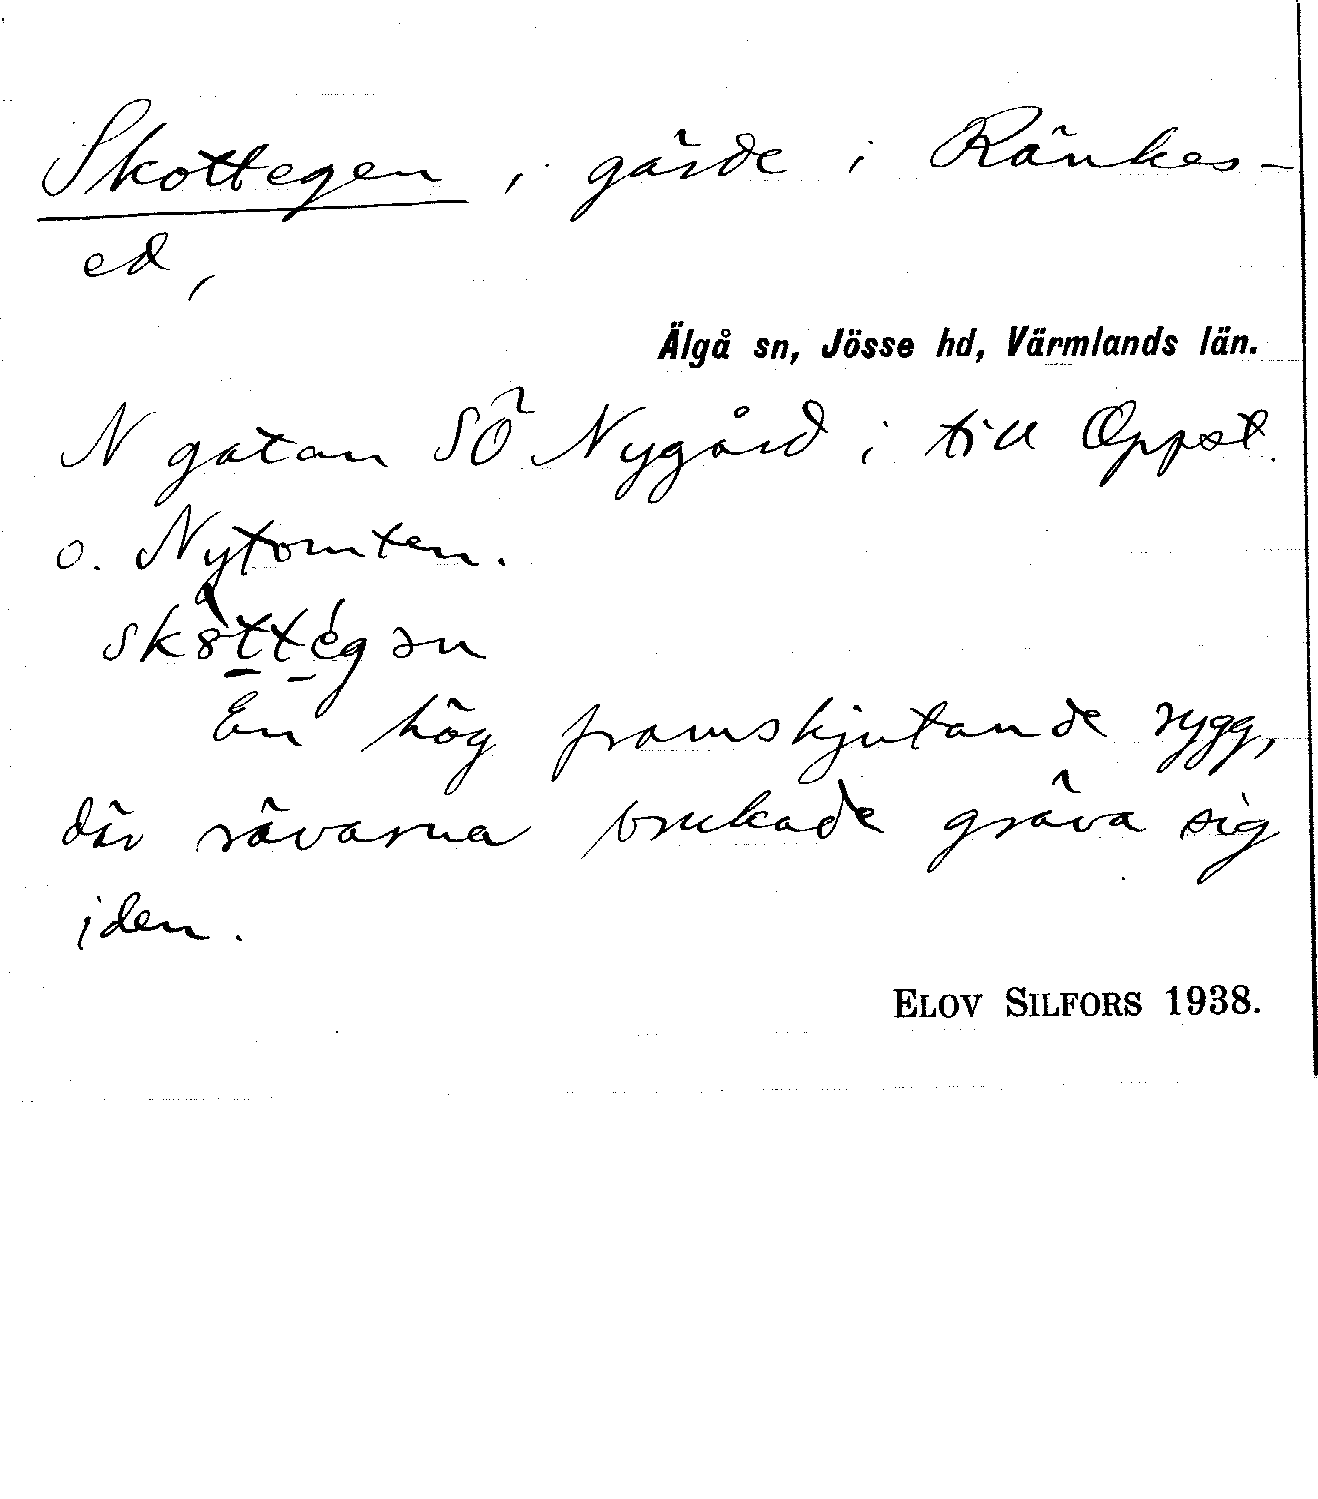 Skottegen, gärde i Ränkes-
ed,
Älgå sn, Jösse hd, Värmlands län.
N gatan SÖ Nygård i till Oppst.
o. Nytomten.
En hög framskjutande rygg,
där rävarna brukade gräva sig
iden.
ELOV SILFORS 1938.